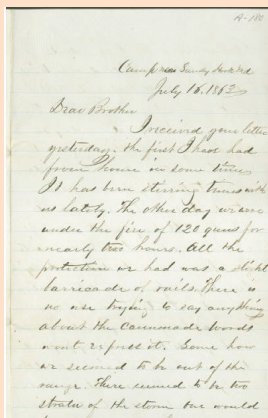 A-180
Camp near Sandy Hook Md
July 16. 1863
Dear Brother
I received your letter
yesterday. the first I have had
from home in some time
It has been stirring times with
us lately. The other day we were
under the fire of 120 guns for
nearly two hours. All the
protection we had was a slight
barricade of rails. There is
no use trying to say anything
about the cannonade words
wont express it. Some how
we seemed to be out of the
range. There seemed to be two
of the storm one would